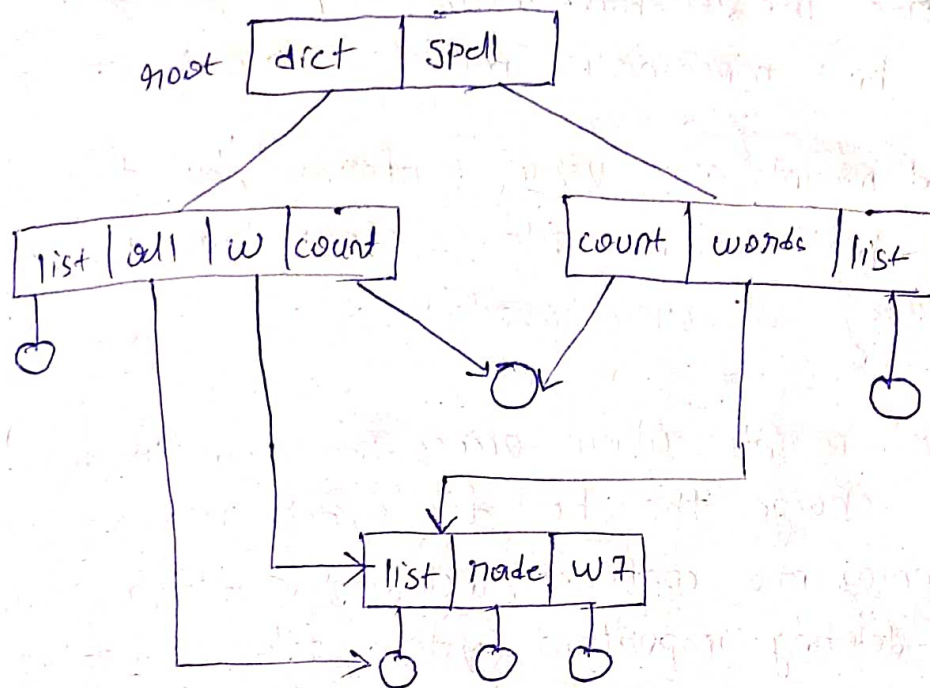 root dict spell
list all w count
count words list
list rade w7